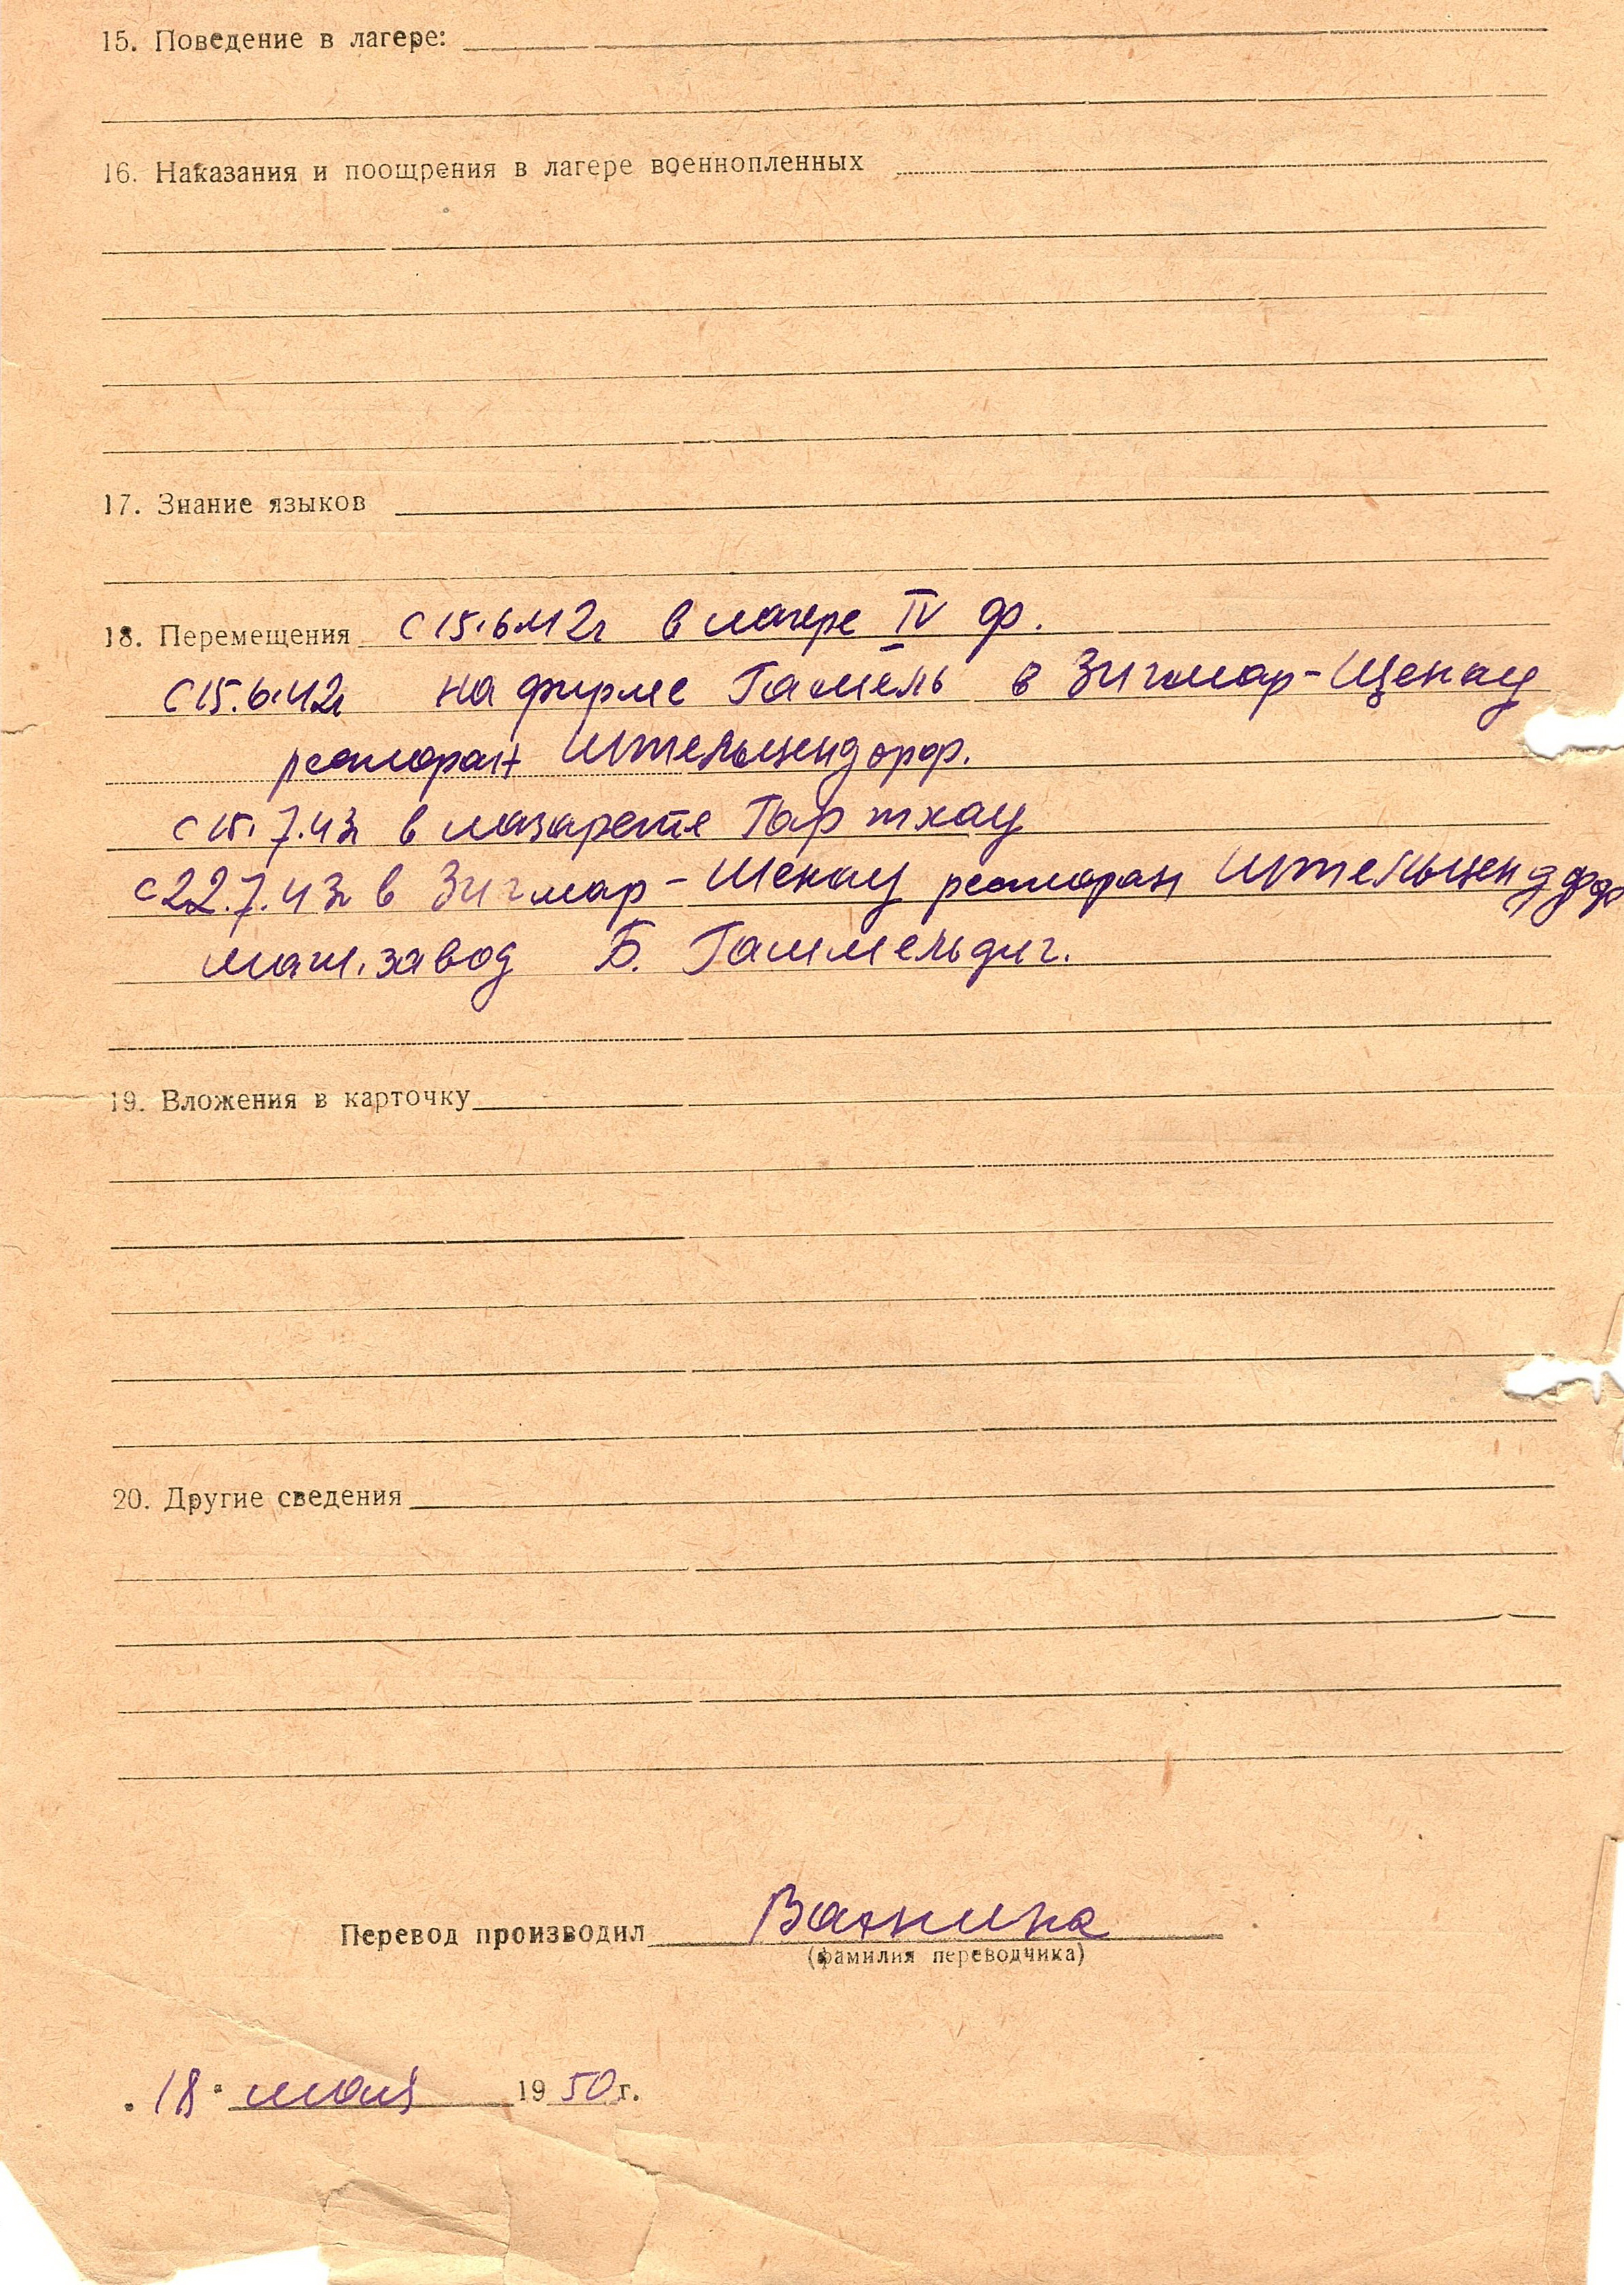 15. Поведение в лагере:
16. Наказания и поощрения в лагере военнопленных
17. Знание языков
18. Перемещения с 15.6.42г в лагере IV ф.
с 15.6.42г на фирме Гамель в Зигмар-Щенау
ресторан Штельцендорф.
с 15.7.43г в лазарете Гартхау
с 22.7.43г в Зигмар-Шенау ресторан Штельцендорф
маш. завод Б. Гаммельдиг.
19. Вложения в карточку
20. Другие сведения
Перевод производил
(фамилия переводчика)
"18" 1950г.